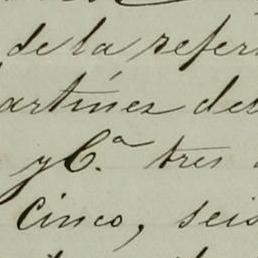 de la refer
artínez des
y C.ª tres
cinco, seis